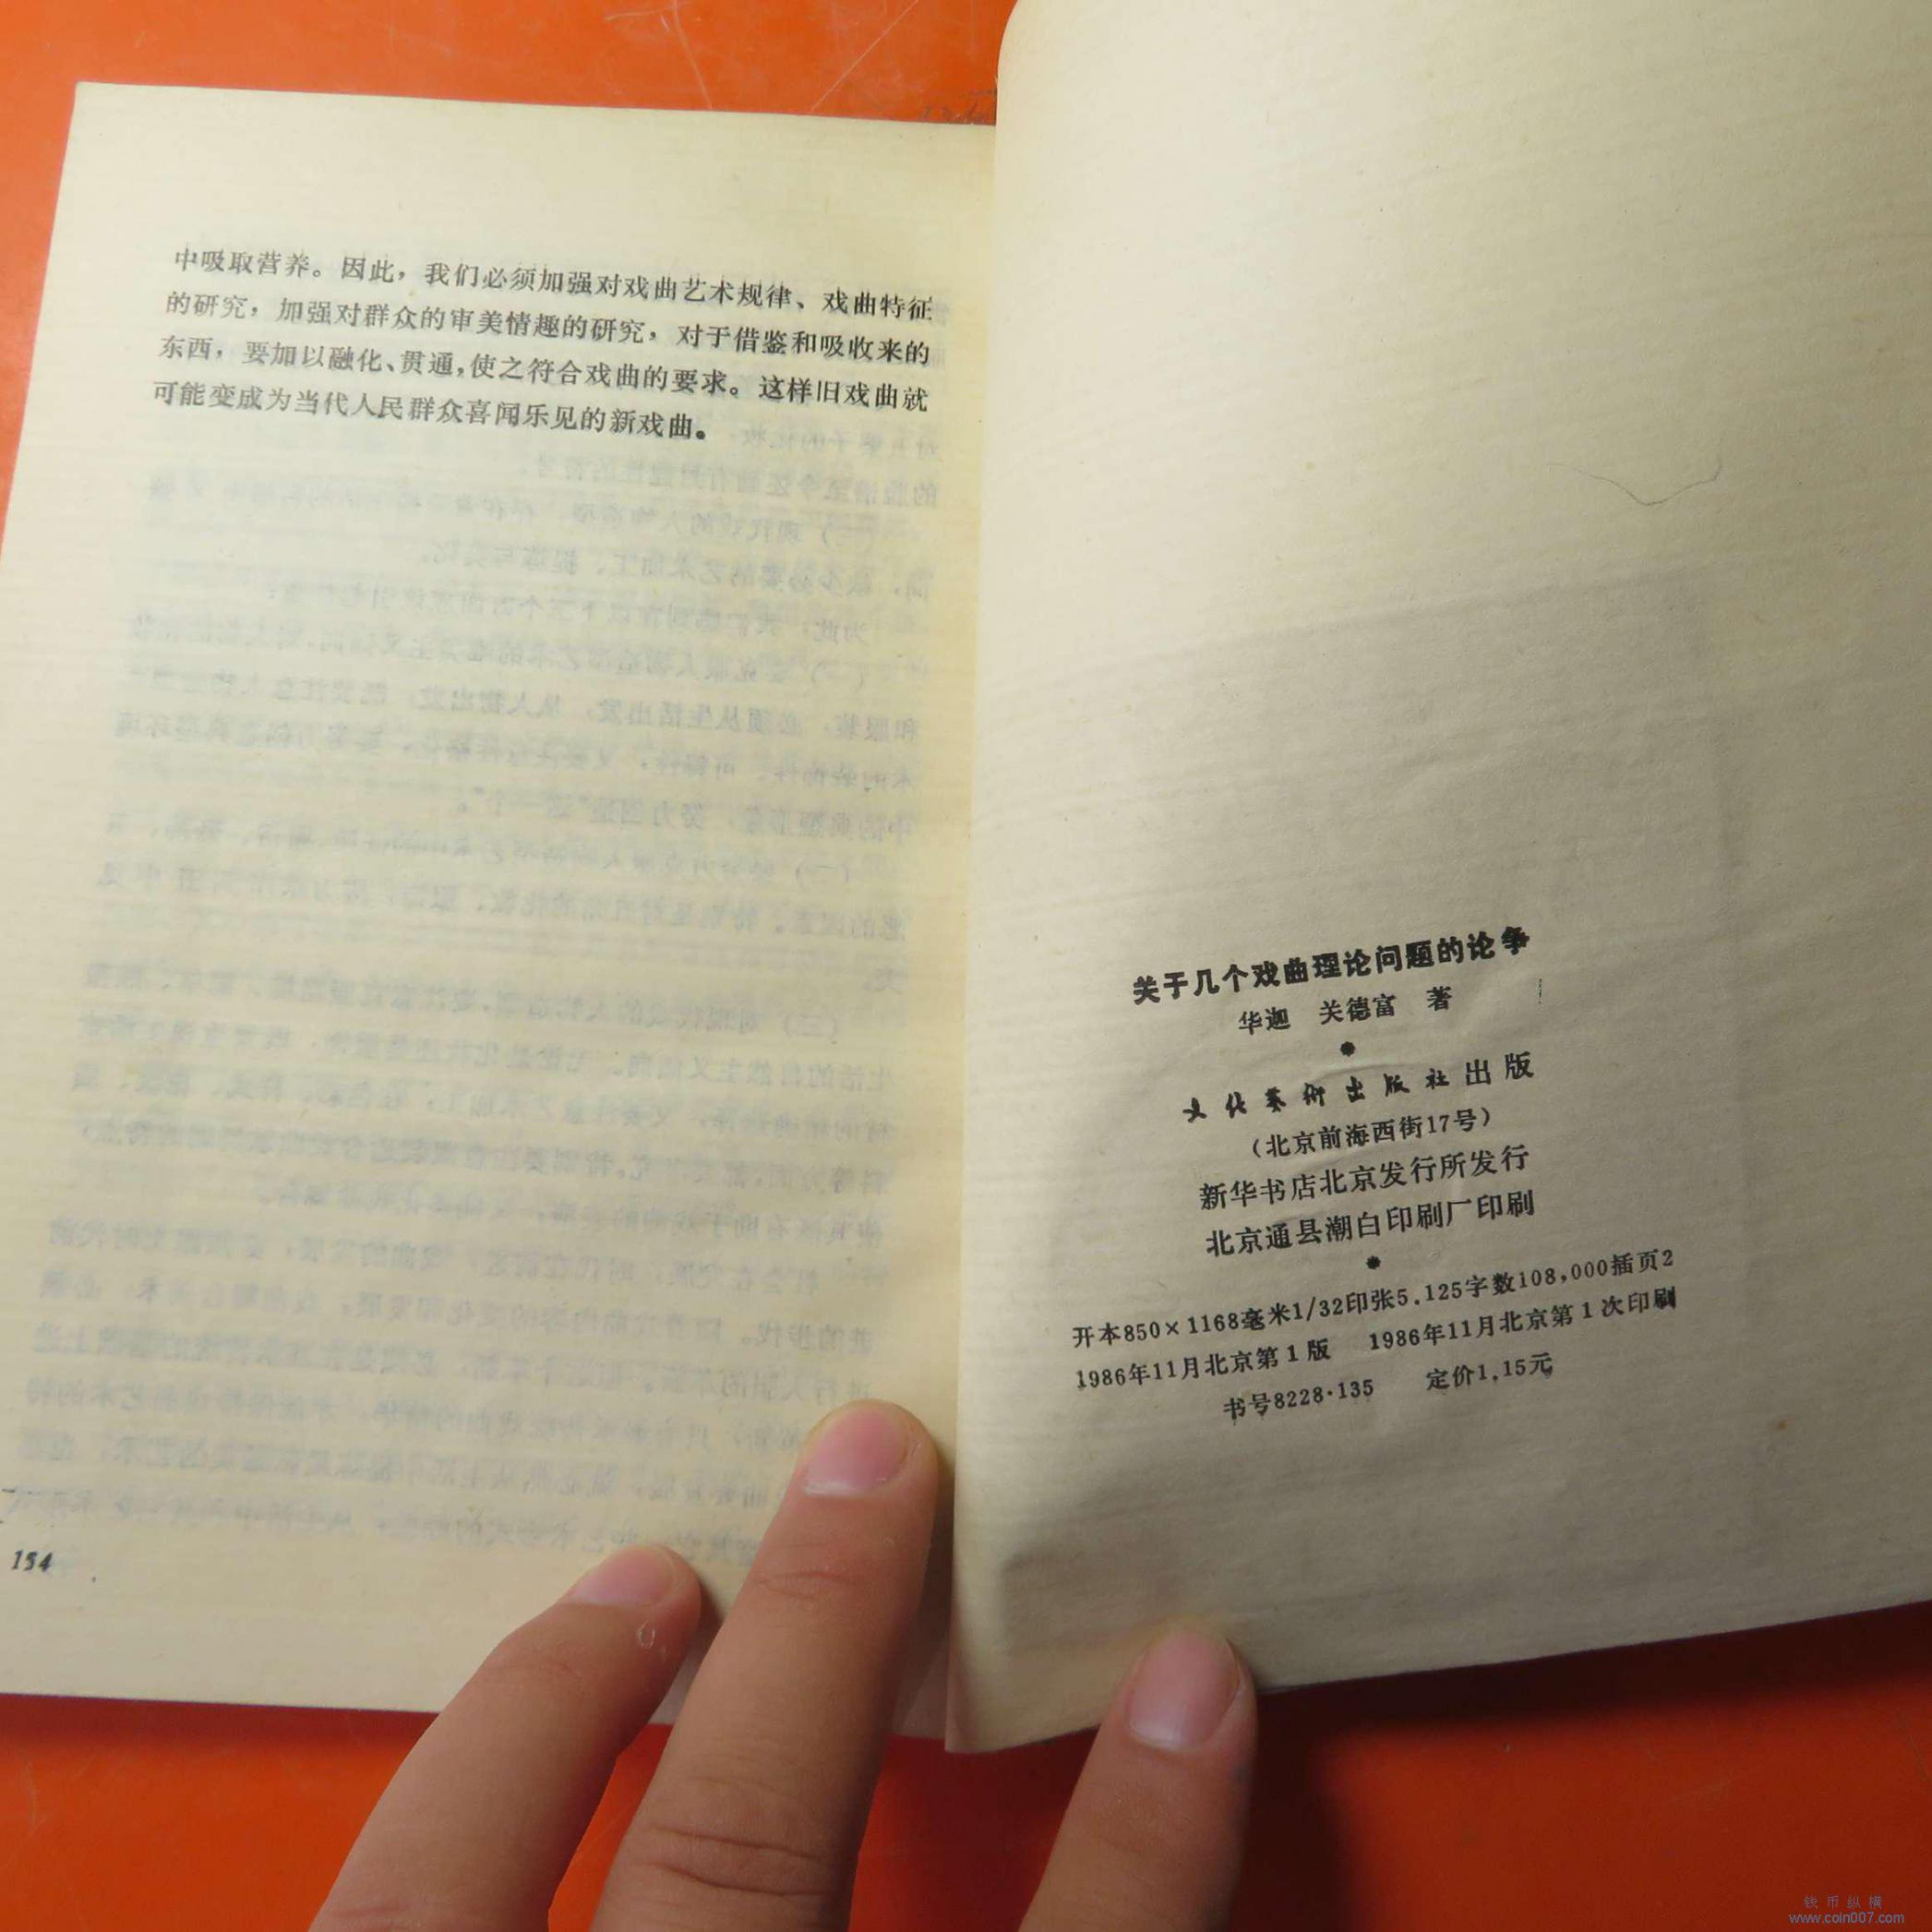 中吸取营养。因此，我们必须加强对戏曲艺术规律、戏曲特征
的研究，加强对群众的审美情趣的研究，对于借鉴和吸收来的
东西，要加以融化、贯通，使之符合戏曲的要求。这样旧戏曲就
可能变成为当代人民群众喜闻乐见的新戏曲。
154
关于几个戏曲理论问题的论争
华迦 关德富 著
文化藝術出版社出版
（北京前海西街17号）
新华书店北京发行所发行
北京通县潮白印刷厂印刷
开本850×1168毫米1/32印张5.125字数108,000插页2
1986年11月北京第1版 1986年11月北京第1次印刷
书号8228·135 定价1.15元
钱币纵横
www.coin007.com